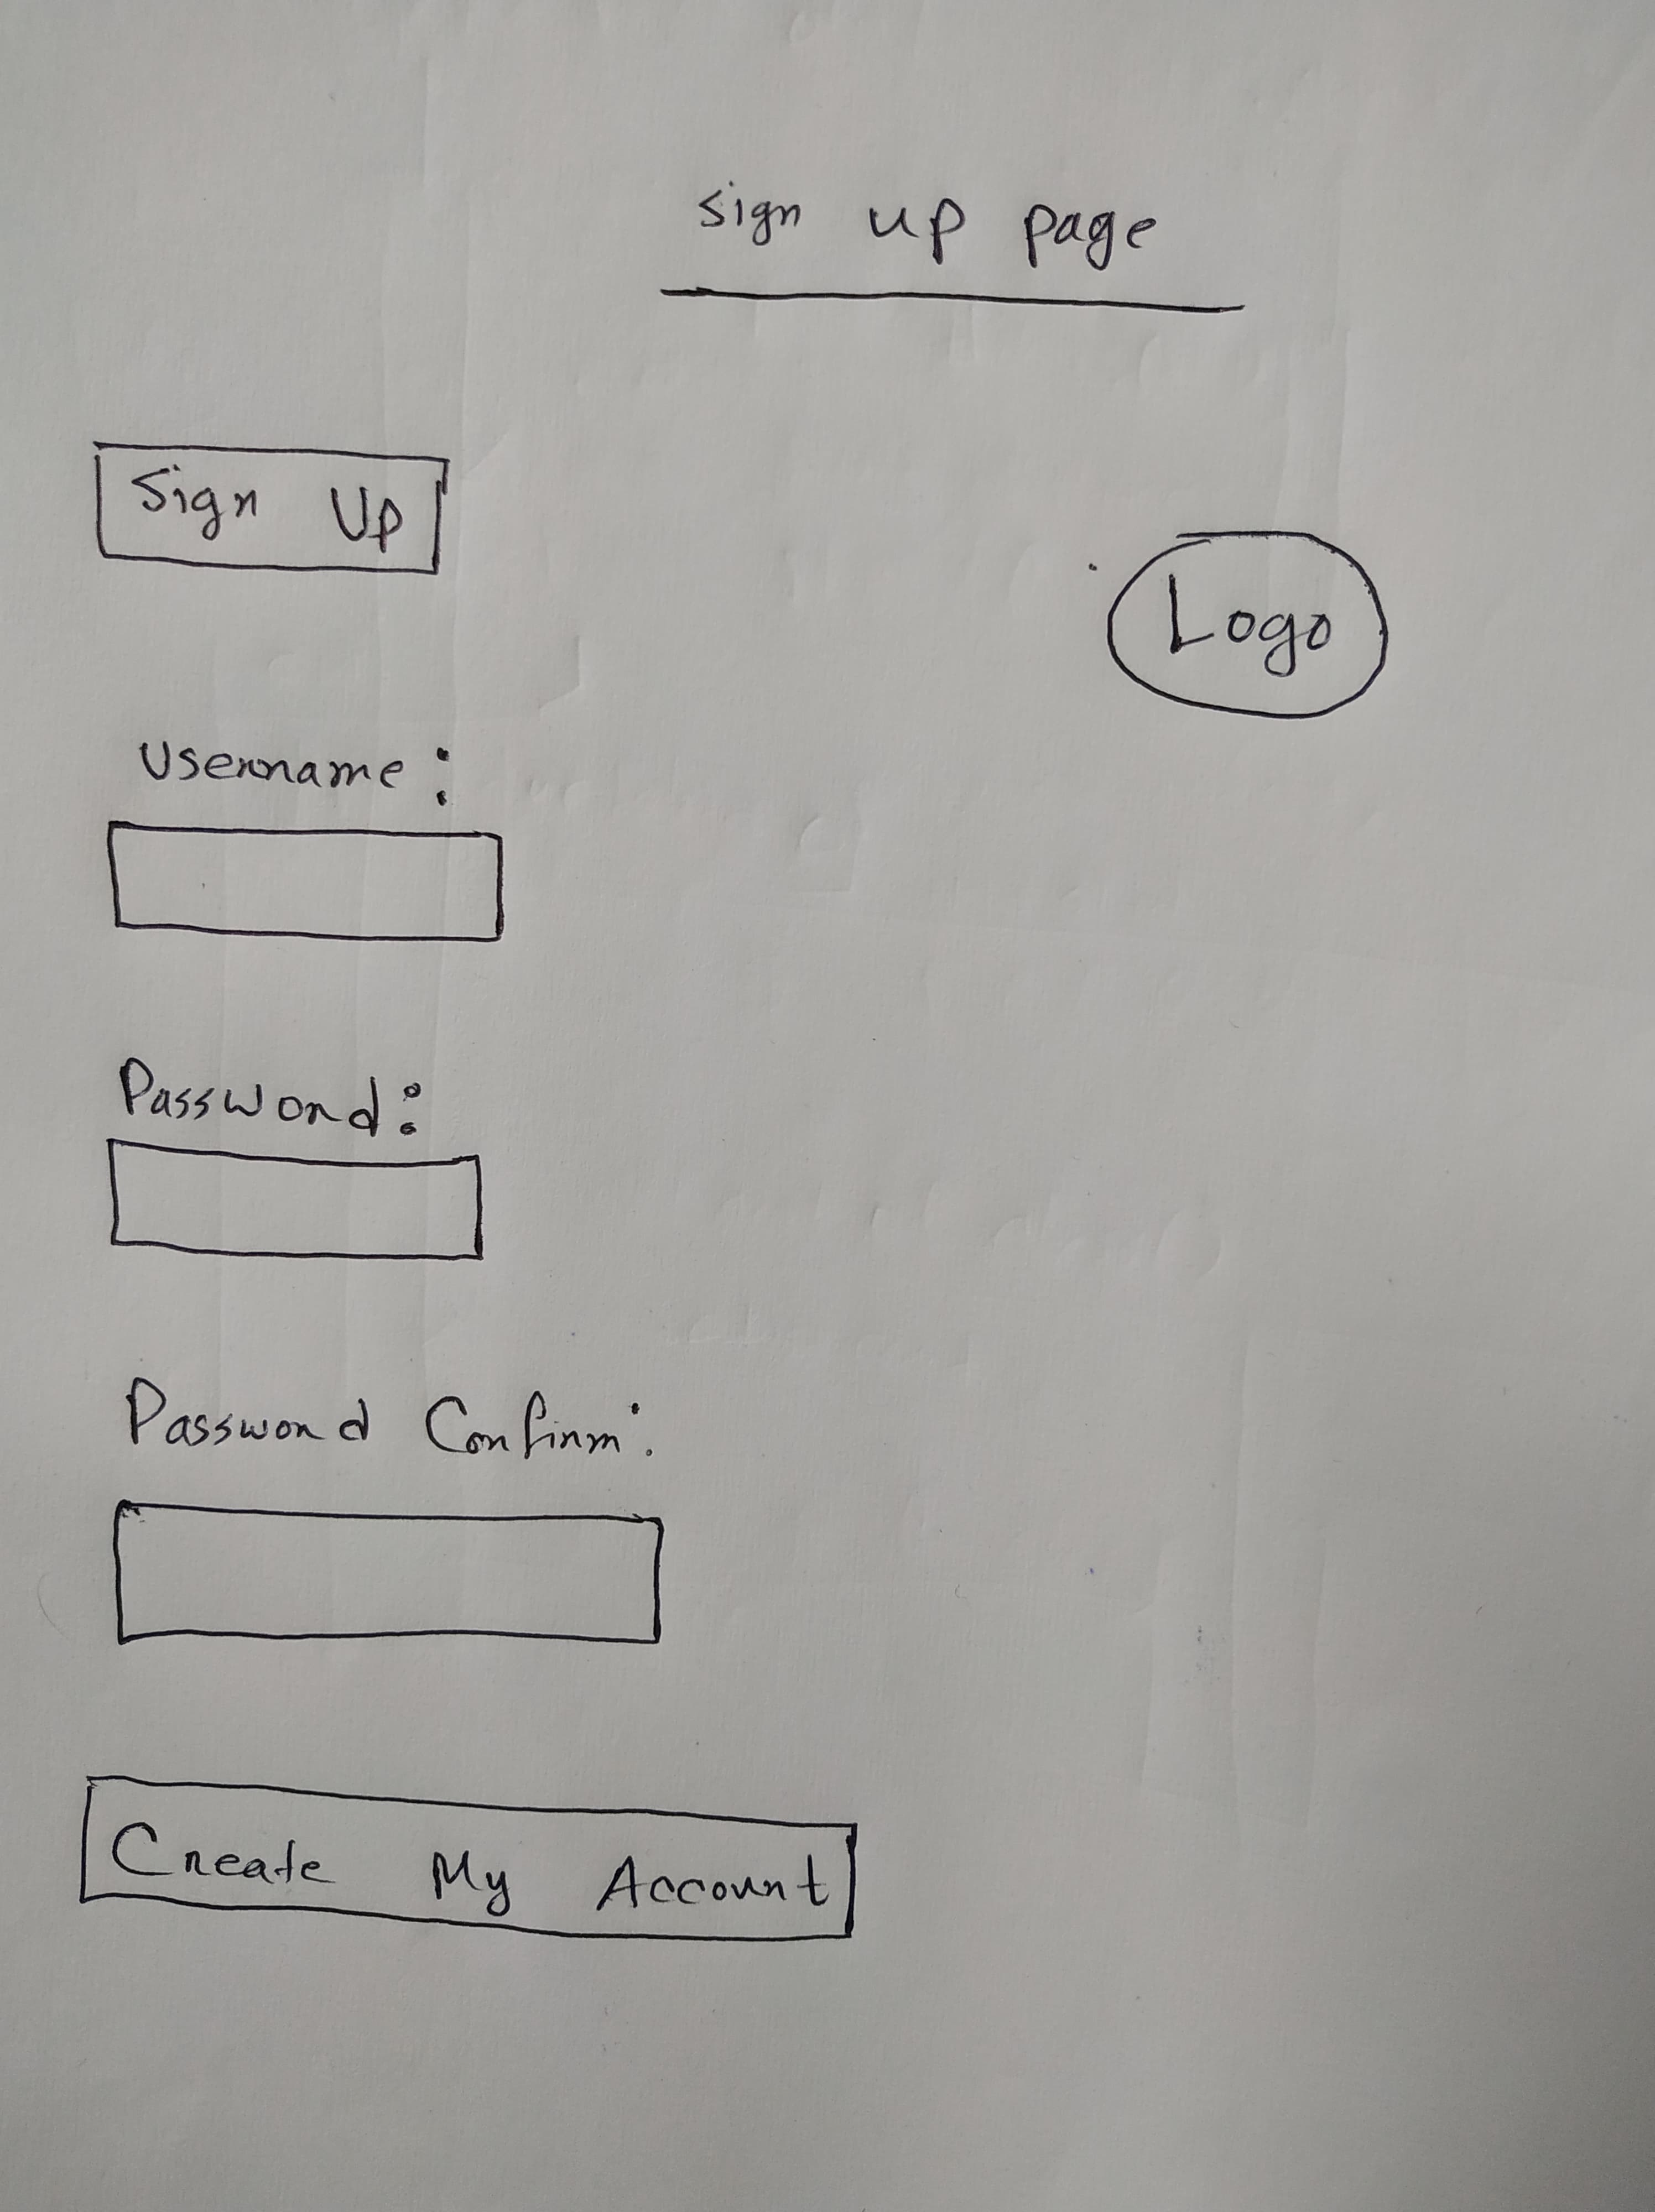 sign up page
Sign Up
Logo
Username:
Password:
Password Confirm:
Create My Account